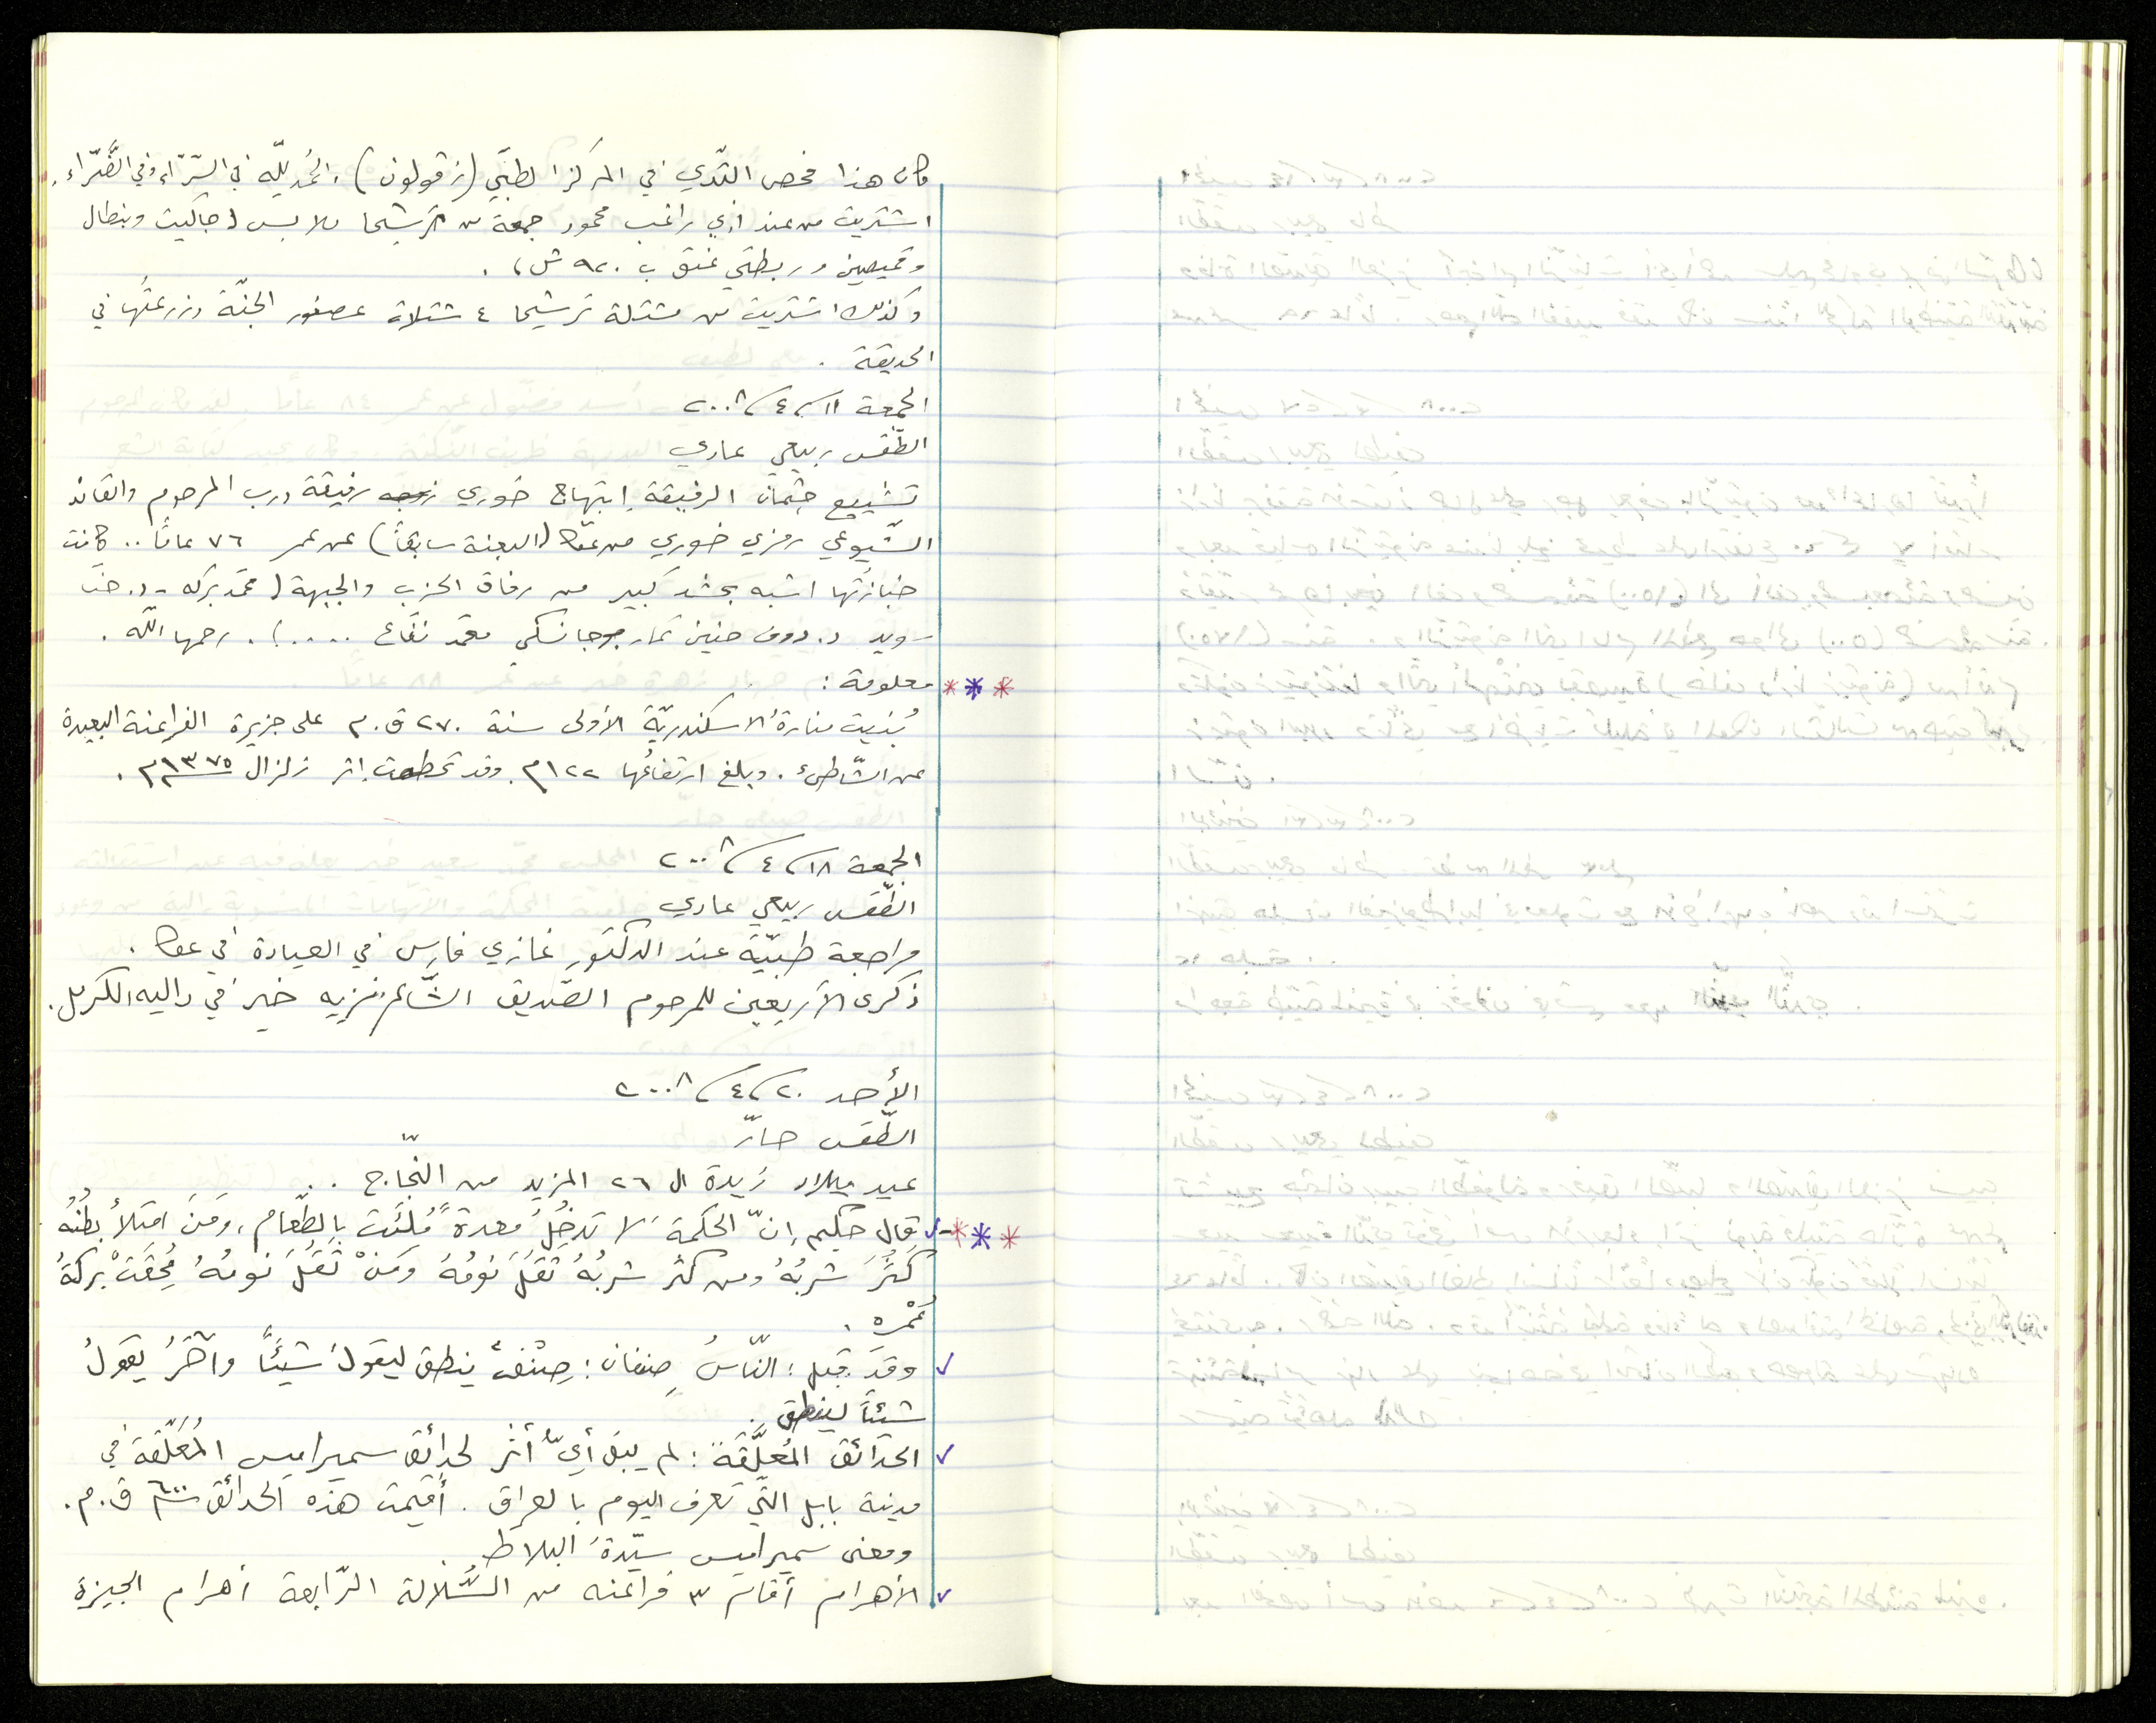 كان هذا فحص الثدي في المركز الطبّي (زقولون). الحمد للّه في السّرّاء وفي الضّرّاء.
اشتريت من عند أبي راغب محمود جمعة من ترشيحا ملابس (جاكيت وبنطال
وقميصين وربطتي عنق ب ٩٢٠ ش).
وكذلك اشتريت من مشتلة ترشيحا ٤ شتلات عصفور الجنّة وزرعتُها في
الحديقة.
الجمعة ١١/٤/٢٠٠٨
الطّقس ربيعي عادي
تشييع جثمان الرفيقة ابتهاج خوري رفيقة درب المرحوم والقائد
الشّيوعي رمزي خوري من عكا (البعنة سابقاً) عن عمر ٧٦ عامًا.. كانت
جنازتها اشبه بحشد كبير من رفاق الحزب والجبهة (محمّد بركه - د. حنا
سويد د. دوف حنين تمار جوجانسكي محمّد نفّاع ....). رحمها اللّه.
معلومة:
بُنيت منارةُ الاسكندريّة الأولى سنة ٢٧٠ ق.م على جزيرة الفراعنة البعيدة
عن الشّاطئ. وبلغ ارتفاعُها ١٢٢م. وقد تحطمت إثر زلزال ١٣٧٥م.
الجمعة ١٨/٤/٢٠٠٨
الطّقس ربيعي عادي
مراجعة طبّيّة عند الدكتور غازي فارس في العيادة في عكا.
ذكرى الأربعين للمرحوم الصّديق الشّاعر نزيه خير في داليه الكرمل.
الأحد ٢٠/٤/٢٠٠٨
الطّقس حارّ
عيد ميلاد زبدة ال ٢٦ المزيد من النّجاح..
قال حكيم إنّ الحكمةَ لا تدخُلُ معدةً مُلئَت بالطّعام، ومَن امتلأ بطنُهُ
كَثُرَ شربُهُ ومن كثر شربُهُ ثقُلَ نومُهُ ومَنْ ثقُلَ نومُهُ مُحِقَتْ بركةُ
عُمْره.
وقد قيل: النّاسُ صِنفان: صِنْفٌ ينطق ليقولَ شيئًا وآخَرُ يقولُ
شيئاً لينطق.
الحدائق المُعلَّقة: لم يبقَ أيّ أثر لحدائق سميراميس المُعَلّقة في
مدينة بابل التّي تعرف اليوم بالعراق. أقيمت هذه الحدائق سنة ٦٠٠ ق.م.
ومعنى سميراميس سيّدةُ البلاط
الأهرام أقام ٣ فراعنه من السُّلالة الرّابعة أهرام الجيزة